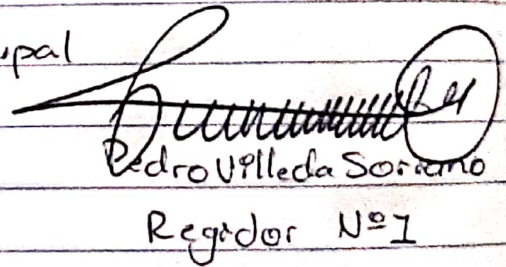 pal
Pedro Villeda Soriano
Regidor Nº1